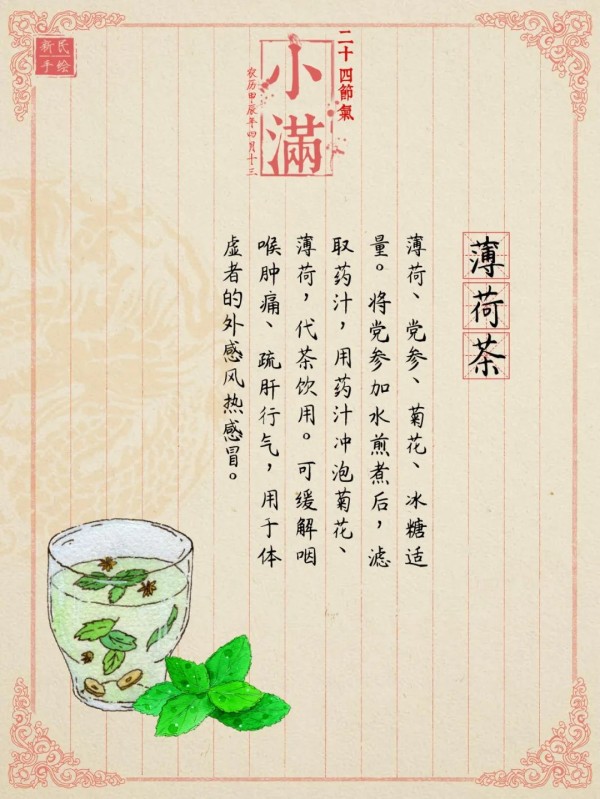 新民
手绘
二十四節氣
小滿
农历甲辰年四月十三
薄荷茶
薄荷、党参、菊花、冰糖适
量。将党参加水煎煮后，滤
取药汁，用药汁冲泡菊花、
薄荷，代茶饮用。可缓解咽
喉肿痛、疏肝行气，用于体
虚者的外感风热感冒。